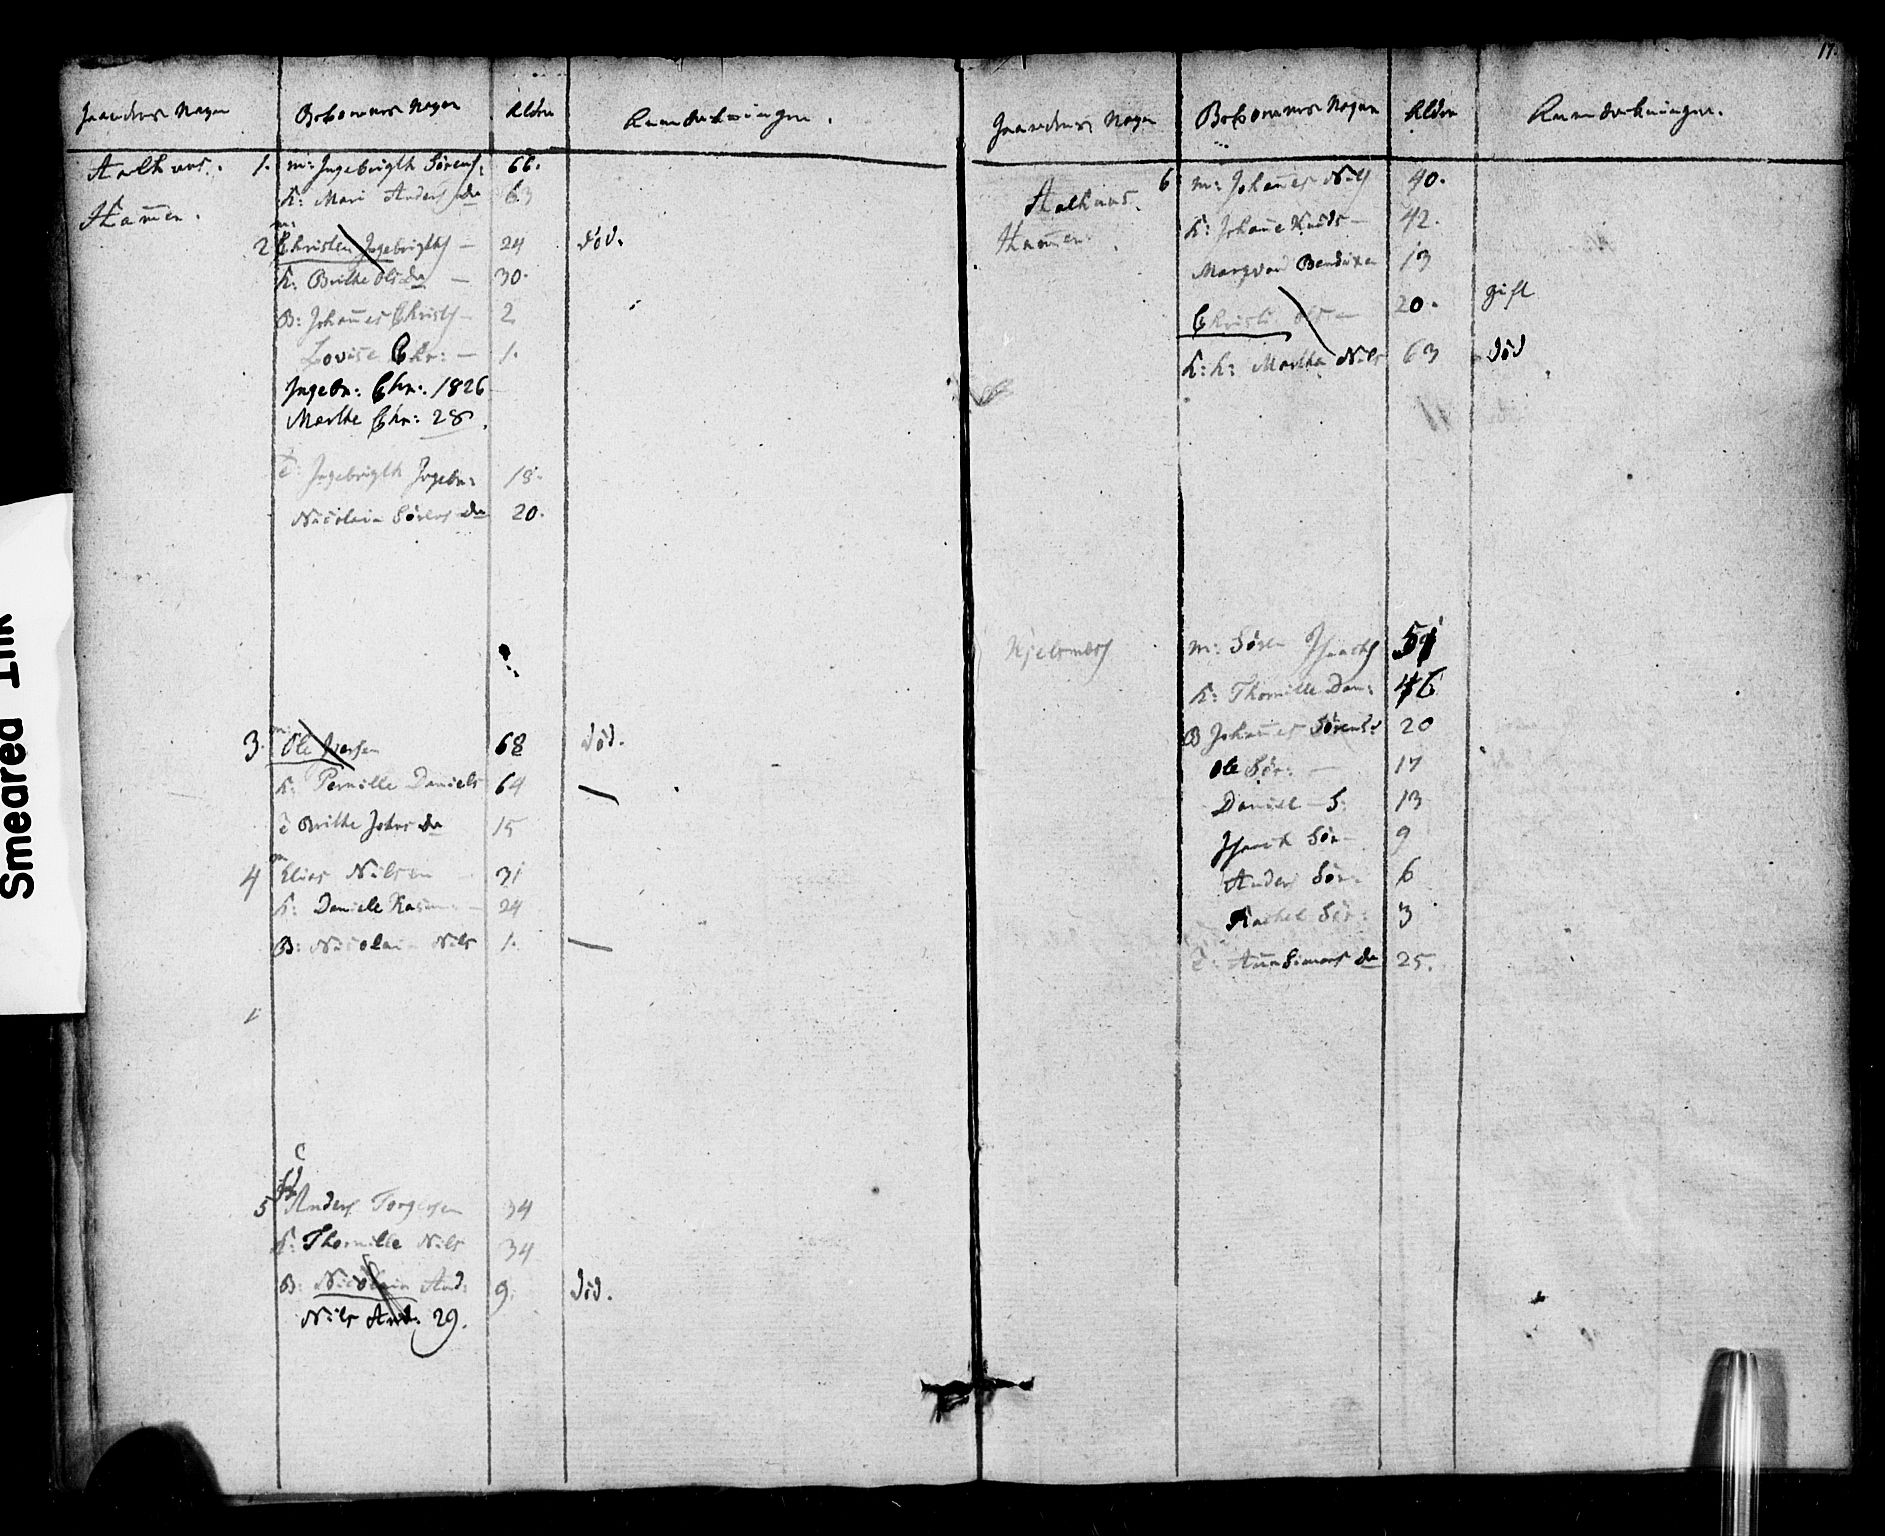 Gaardenes Nagn Beboernes Nagn Alder Anmærkninger.
Aalhuus. 1. m: Ingebrigth Sørens: 66.
Hammen. K: Mari Anders da 63
2 m: Christen Ingebrigths — 24 död.
K: Brithe Ols da — 30.
B: Johannes Christs — 2
Lovise Chr: — 1.
Ingebr: Chr: 1826
Marthe Chr: 28.
T: Ingebrigth Ingebr: 18.
Nicolaia Sørens da 20.
3. m: Ole Iversen 68 död.
K: Pernille Daniels 64 —
T Brithe Johns da 15
4 m Elias Nilsen 31
K: Daniele Rasm — 24
B: Nicolaia Nils 1. —
5 Anders Torgersen 34
K: Thornille Nils 34
B: Nicolaia And: 9. död.
Nils And: 29.
17.
Gaardenes Nagn Beboernes Nagn Alder Anmærkninger.
Aalhuus. 6 m: Johannes Nils 40.
Hammen. K: Johanne Knuds — 42.
Bendixen 13
Christi Ols — 20. gift
K: k: Martha Nils 63 död
m: Søren 51
K: Thornille Dan: 46
B Johannes Sørens: 20
Ole Sør: — 17
Daniel — S: 13
Sør — 9
Anders Sør — 6
Rachel Sør: 3
T: Anna Simons da 25.
Smeared Ink